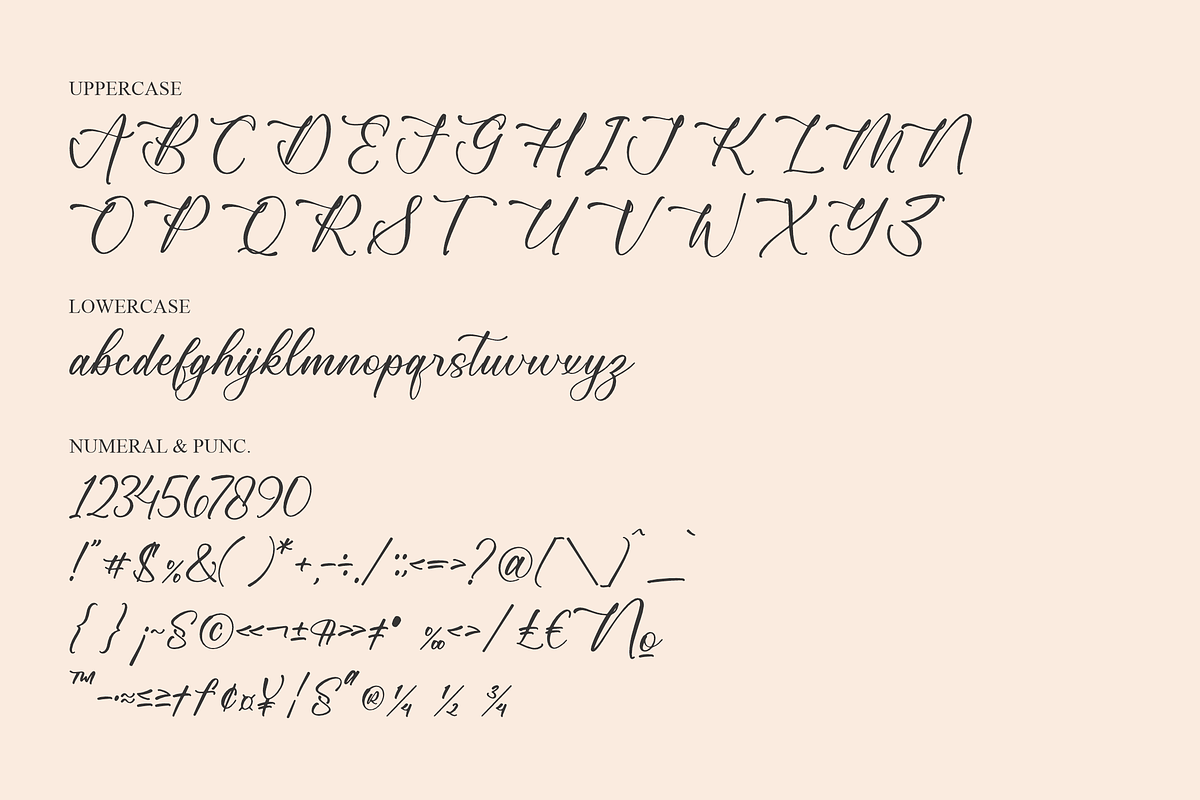 UPPERCASE
A B C D E F G H I J K L M N
O P Q R S T U V W X Y Z
LOWERCASE
abcdefghijklmnopqrstuvwxyz
NUMERAL & PUNC.
1234567890
!"#$%&( )*+,-÷./:;<=>?@[\]^_`
{ } ¡~§©«¬±¶»‡• ‰<>/££€№
™–·≈≤≥†ƒ¢¤¥¦§ª®¼ ½ ¾